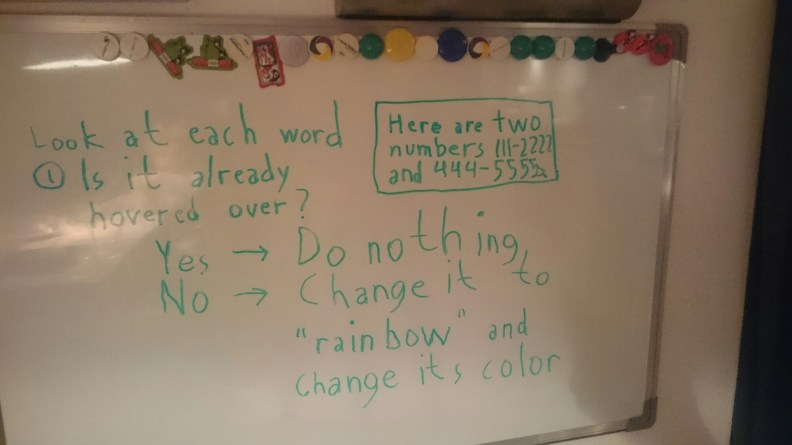 Look at each word
① Is it already
hovered over?
Yes → Do nothing
No → Change it to
"rainbow" and
change its color
Here are two
numbers 111-2222
and 444-5555